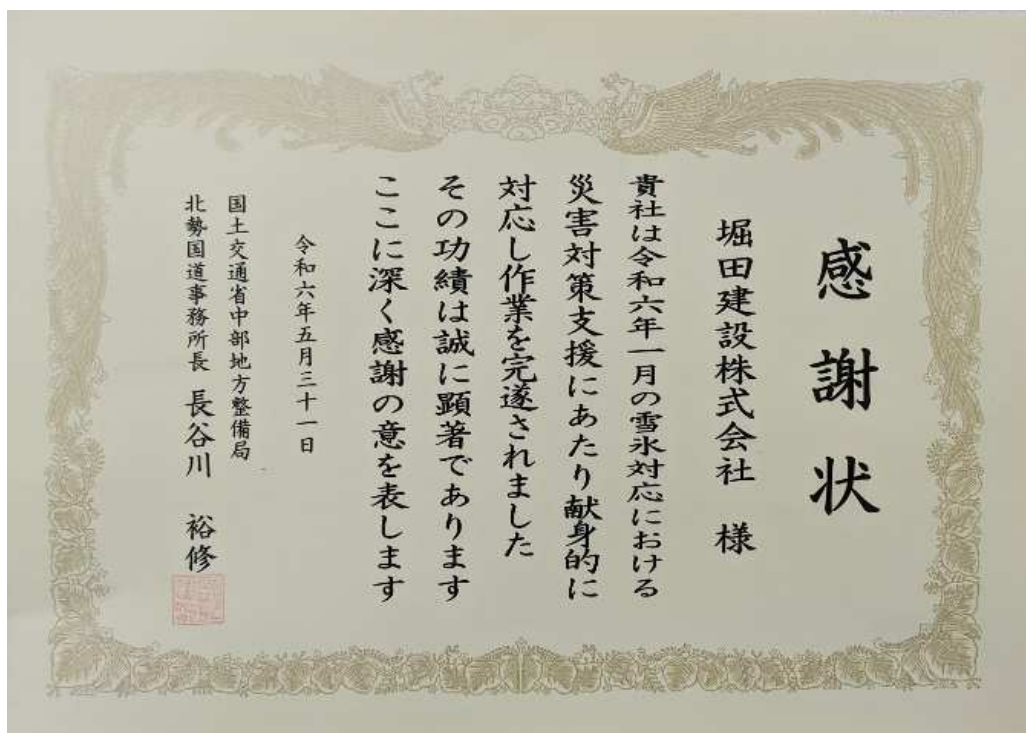 感謝状
堀田建設株式会社 様
貴社は令和六年一月の雪氷対応における
災害対策支援にあたり献身的に
対応し作業を完遂されました
その功績は誠に顕著であります
ここに深く感謝の意を表します
令和六年五月三十一日
国土交通省中部地方整備局
北勢国道事務所長 長谷川 裕修